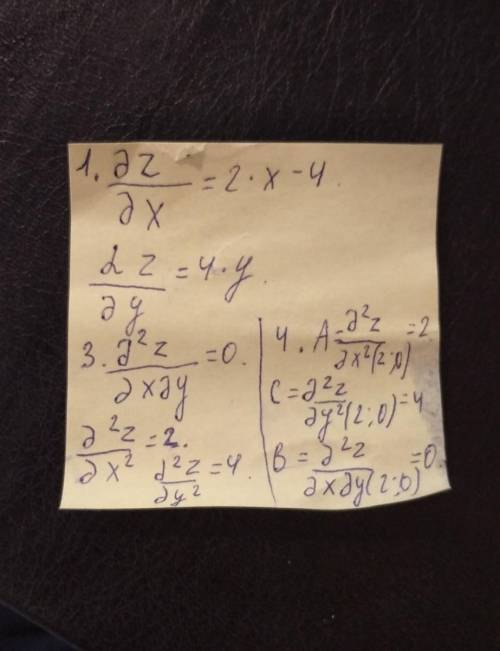 1. ∂z/∂x = 2·x-4.
∂z/∂y = 4·y.
3. ∂²z/∂x∂y = 0.
∂²z/∂x² = 2.
∂²z/∂y² = 4.
4. A = ∂²z/∂x²(2;0) = 2.
C = ∂²z/∂y²(2;0) = 4
B = ∂²z/∂x∂y(2;0) = 0